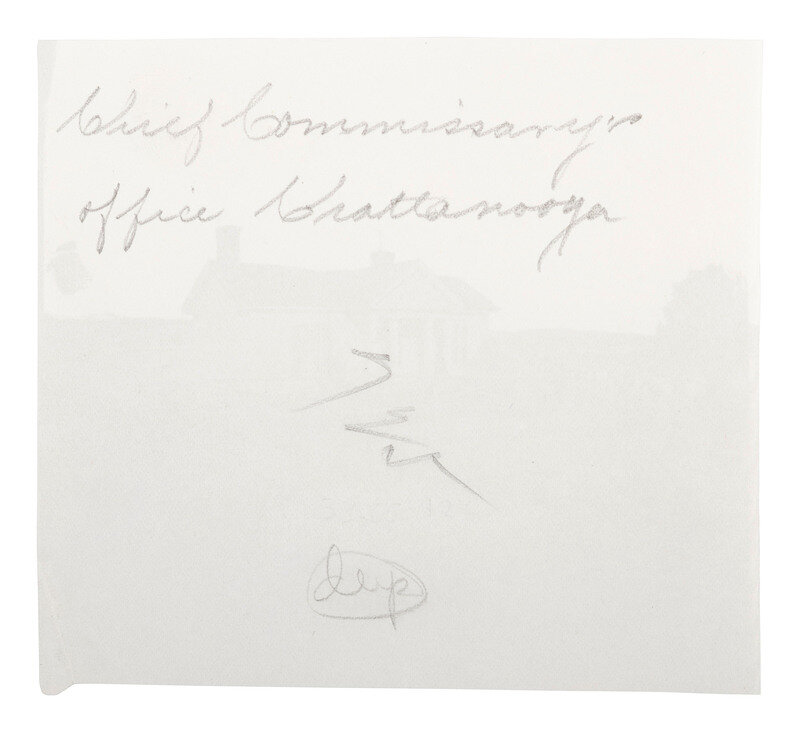 Chief Commissary's
office Chattanooga
dup